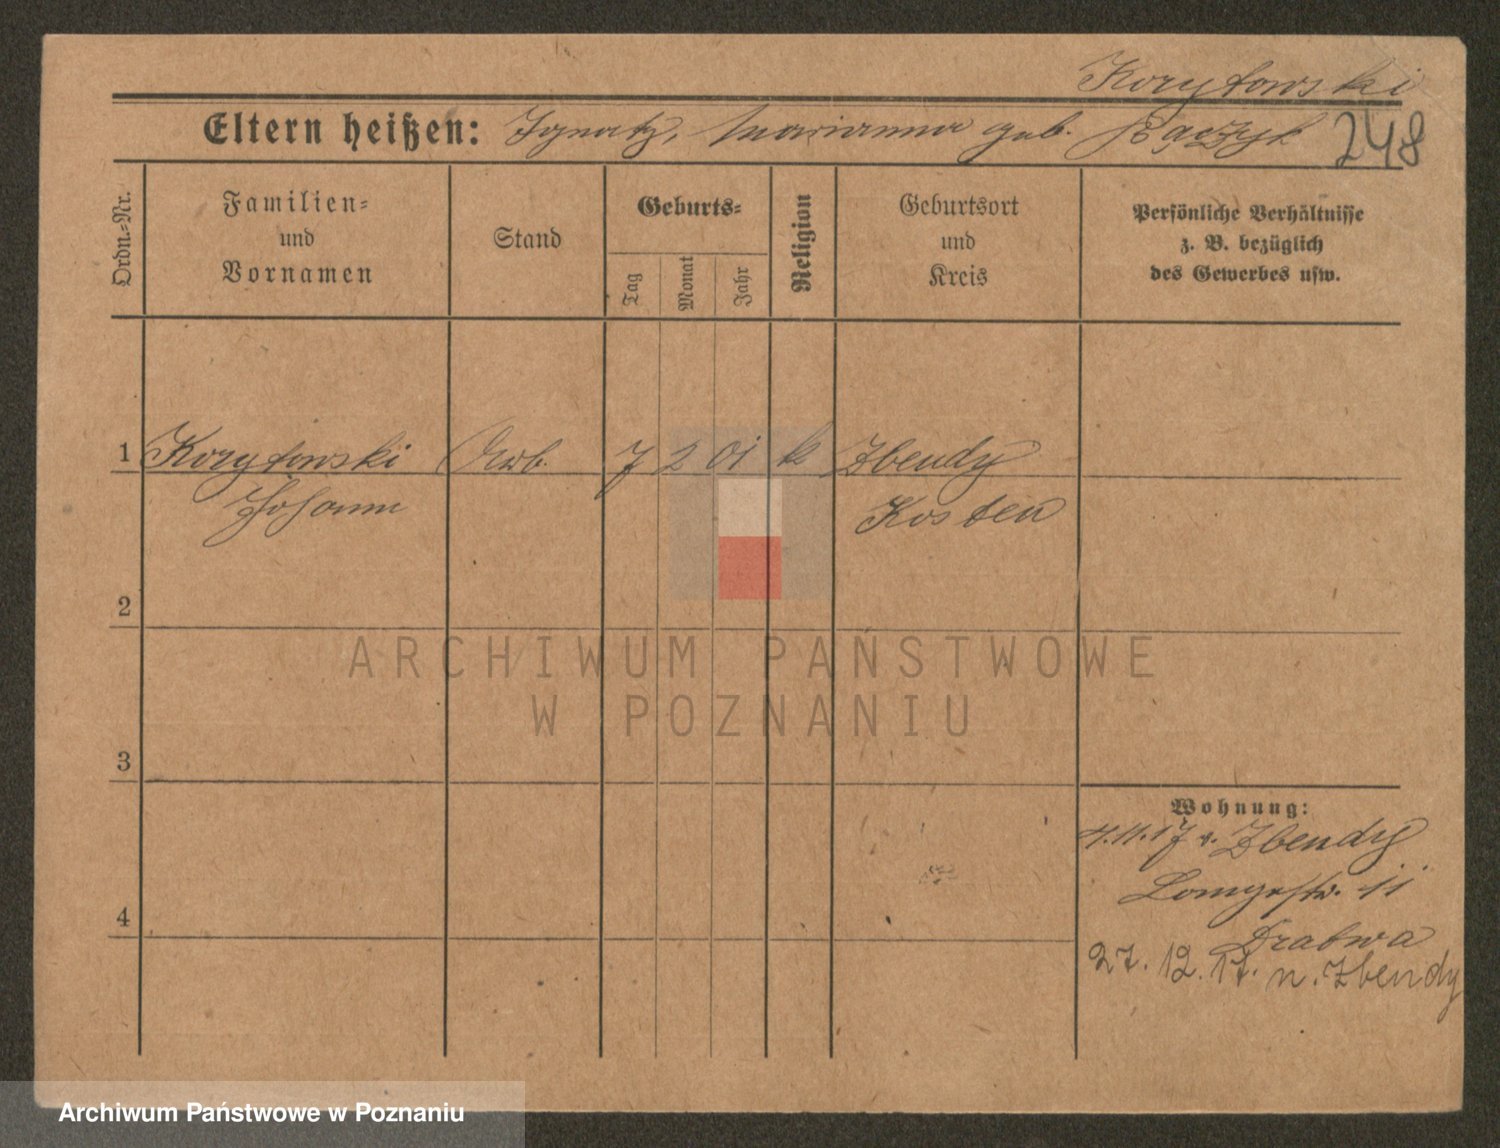 Korytowski
Eltern heißen: Ignatz, Marianna geb. 248
Ordn.-Nr.
Familien-
und
Vornamen
Stand
Geburts-
Tag
Monat
Jahr
Religion
Geburtsort
und
Kreis
Persönliche Verhältnisse
z. B. bezüglich
des Gewerbes usw.
1 Korytowski Arb. 7 2 01 k Zbendy
Johann Kosten
2
3
4
Wohnung:
4.11.17 v. Zbendy
Langestr. 11
Drabwa
27. 12. 17. n. Zbendy
ARCHIWUM PAŃSTWOWE
W POZNANIU
Archiwum Państwowe w Poznaniu